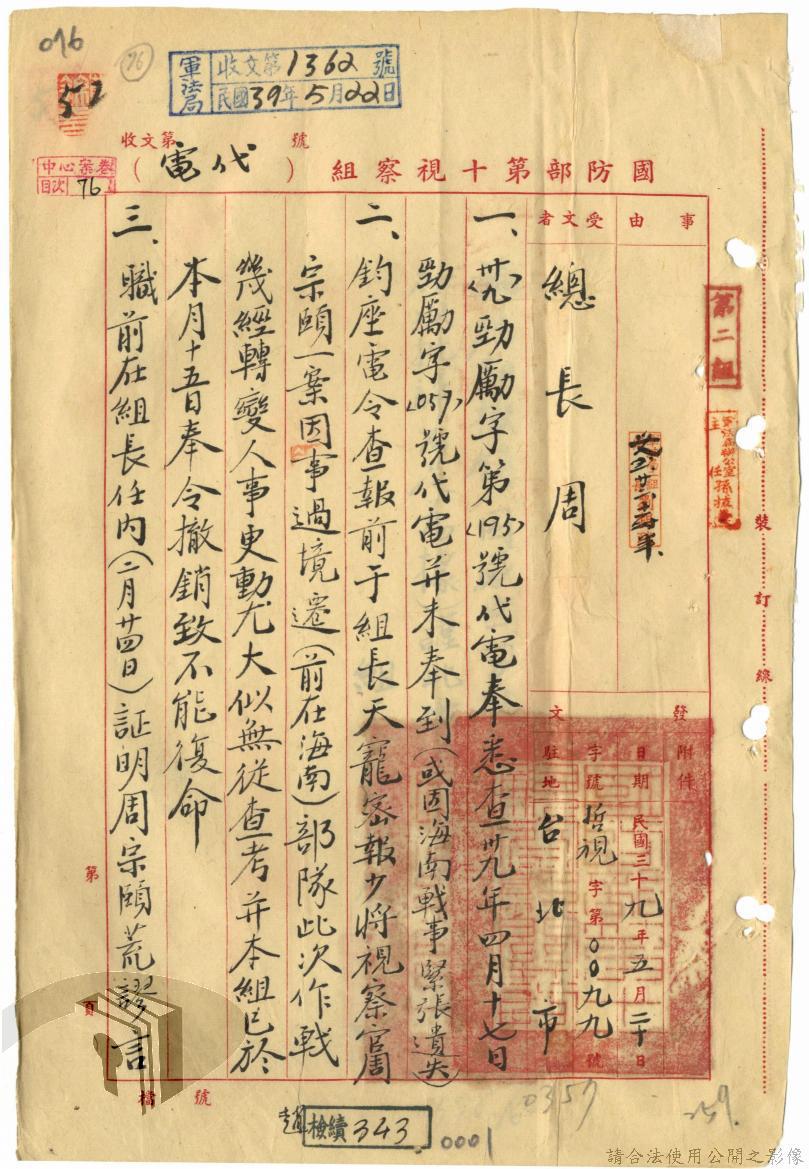 076
76
軍法局
收文第1362號
民國39年5月22日
中心案卷
目次 76
國防部第十視察組(代電)
收文第 號
事由
受文者
總長周
第二組
裝訂線
發文
附件
日期 民國三十九年五月二十日
字號 哲視字第0099號
駐地 台北市
一、〈卅九〉勁勵字第〈195〉號代電奉悉查卅九年四月十七日
勁勵字〈057〉號代電并未奉到(或因海南戰事緊張遺失)
二、鈞座電令查報前于組長天寵密報少將視察官周
宗頤一案因事過境遷(前在海南)部隊此次作戰
幾經轉變人事更動尤大似無從查考并本組已於
本月十五日奉令撤銷致不能復命
三、職前在組長任內(二月廿四日)証明周宗頤荒謬言
第 頁
檔 號
檢續343
0001
0357
259
請合法使用公開之影像